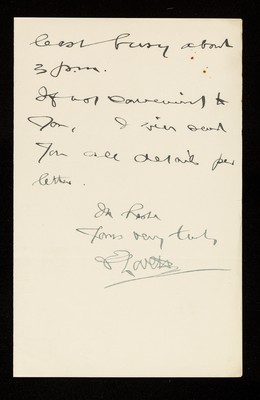 least busy about
3 pm.
If not convenient to
you, I will send
you all details per
letter.
In haste
Yours very truly